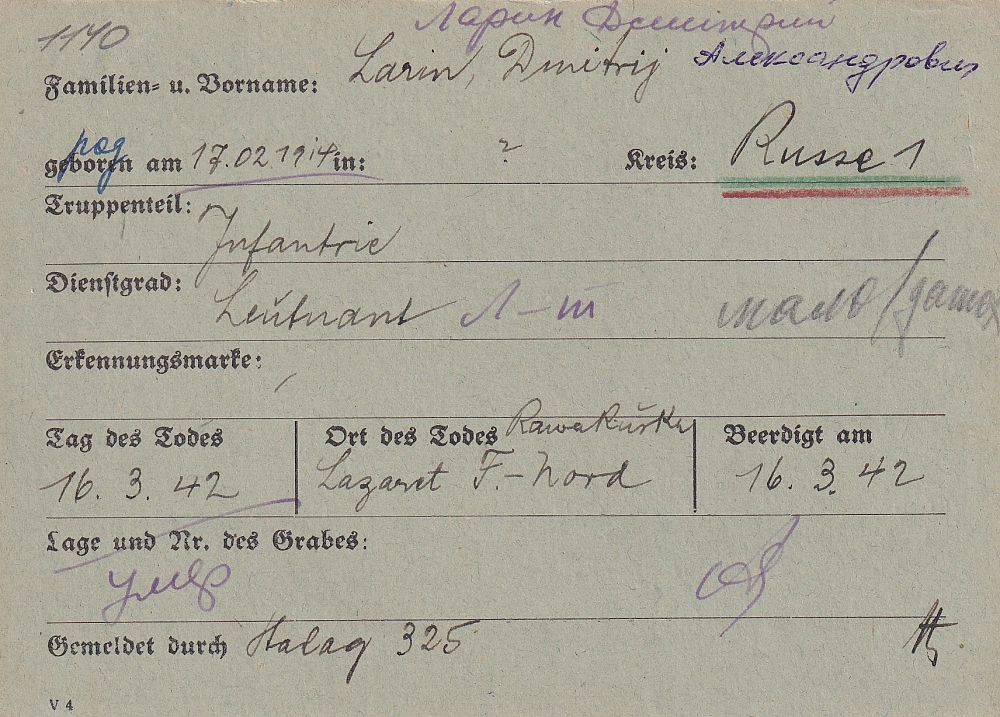 Ларин Дмитрий
1140
Familien= u. Vorname: Larin, Dmitrij Александрович
род
geboren am 17.02 1914 in: ? Kreis: Russe 1
Truppenteil:
Infantrie
Dienstgrad:
Leutnant Л-т мало/
Erkennungsmarke:
Tag des Todes Ort des Todes Rawa Ruska Beerdigt am
16. 3. 42 Lazaret F.-Nord 16. 3. 42
Lage und Nr. des Grabes:
умер
Gemeldet durch Stalag 325
V 4